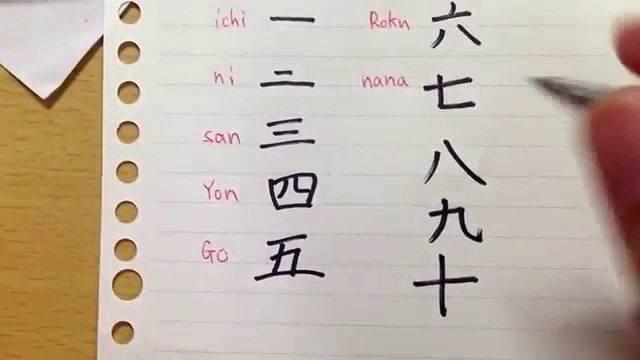 ichi 一
ni 二
san 三
Yon 四
Go 五
Roku 六
nana 七
八
九
十